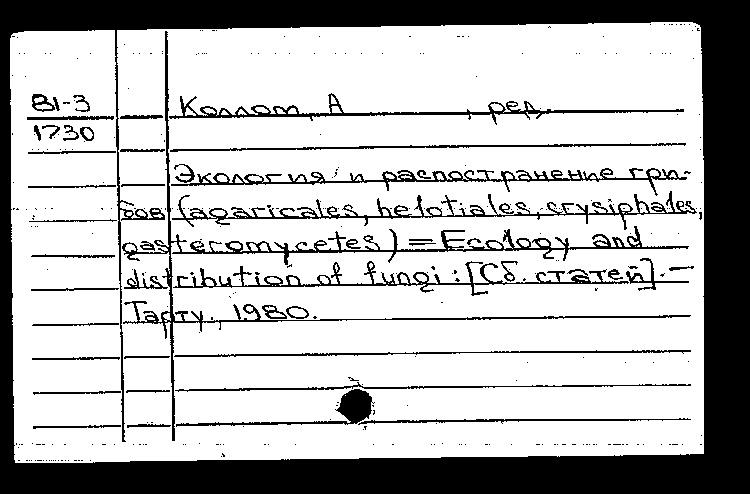 81-3 Коллом, А , ред.
1730
Экология и распространение гри-
бов (agaricales, helotiales, erysiphales,
gasteromycetes) = Ecology and
distribution of fungi : [Сб. статей]. —
Тарту, 1980.